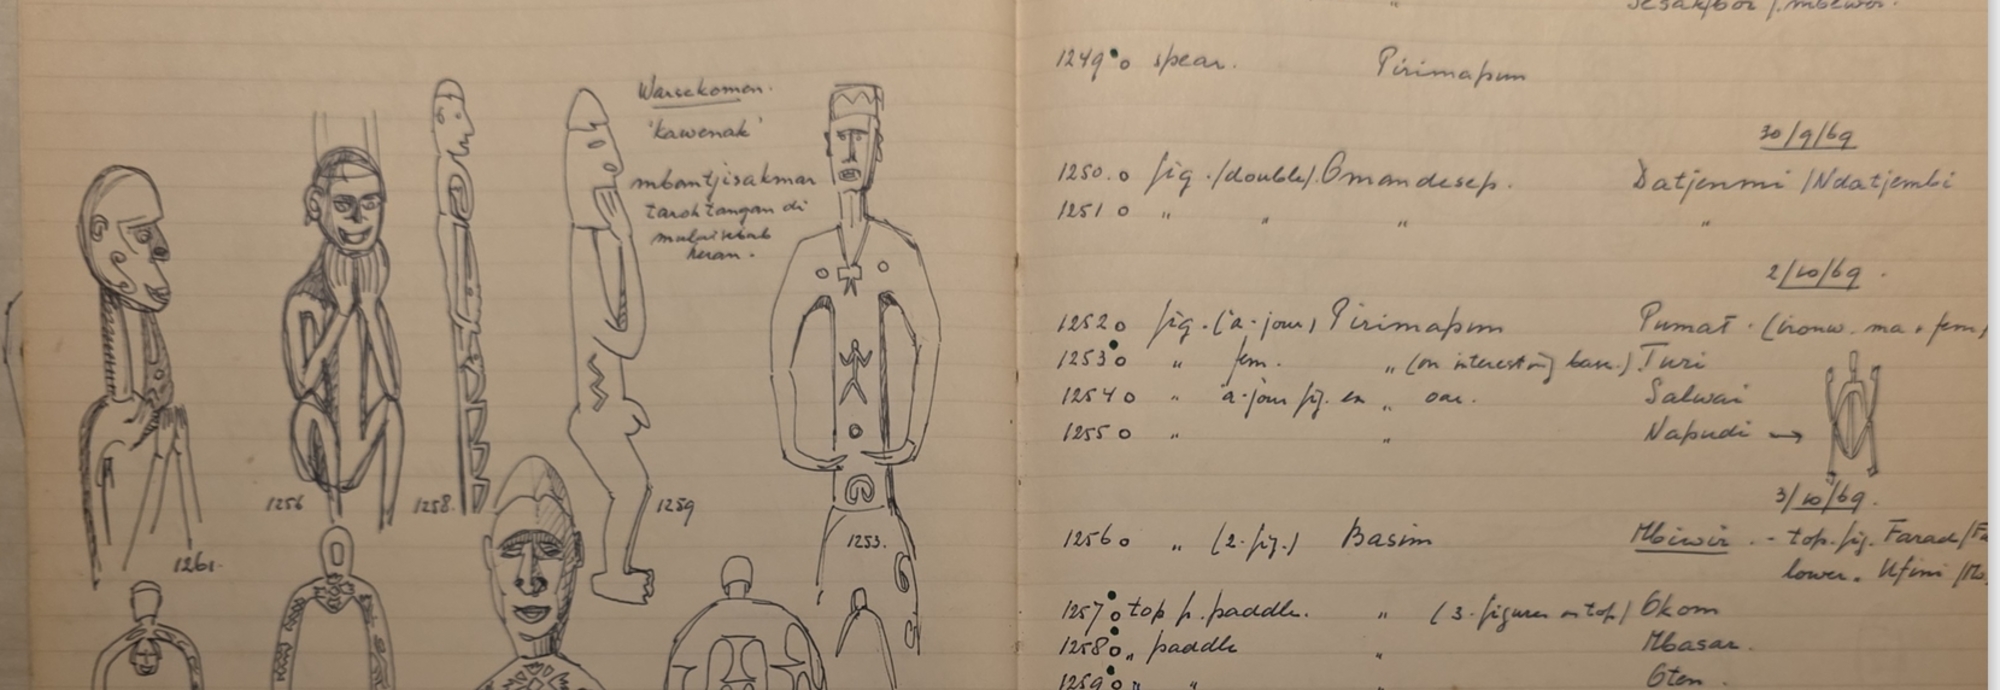 Warsekomen.
'kawenak'
mbantjisakmar
taroh tangan di
heran.
1256
1258.
1259
1253.
1261.
1249 o spear. Pirimapun
30/9/69
1250. o fig. /double/. Omandesep. Datjenmi /Ndatjembi
1251 o " " " "
2/10/69.
1252 o fig. (a-jour) Pirimapun Pumat. (irouw. ma + fem)
1253 o " fem. " (on interesting base.) Turi
1254 o " a-jour fig. en " oar. Salwai
1255 o " " Napudi →
3/10/69.
1256 o " (2. fig.) Basim Mbiwir. - top. fig. Farad/
lower. Ufini /
1257 o top p. paddle. " (3. figures on top) Okom
1258 o " paddle " Mbasar.
1259 o " " " Oten.